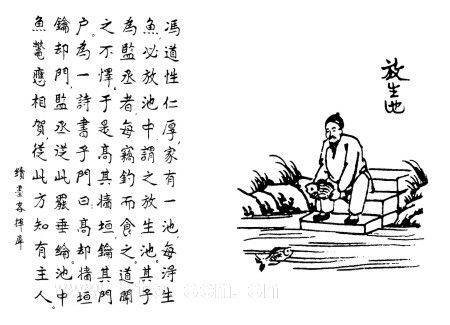 放生池
馮道性仁厚，家有一池，每得生
魚，必放池中，謂之放生池。其子
為監丞者，每竊釣而食之。道聞
之不懌。于是高其墻垣，鑰其門
户，為一詩書于門曰：高却墻垣
鑰却門，監丞從此罷垂綸。池中
魚鱉應相賀，從此方知有主人。
續墨客揮犀